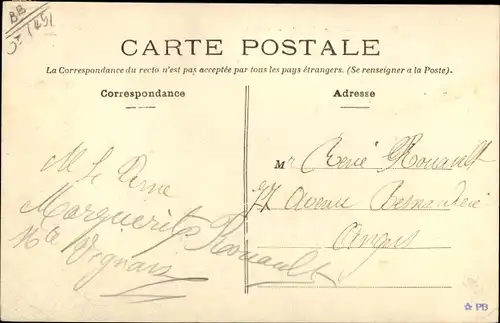 BB
CARTE POSTALE
La Correspondance du recto n'est pas acceptée par tous les pays étrangers. (Se renseigner a la Poste).
Correspondance
Adresse
Mr René Rouault
27 Avenue
Angers
M Le
Marguerite Rouault
PB